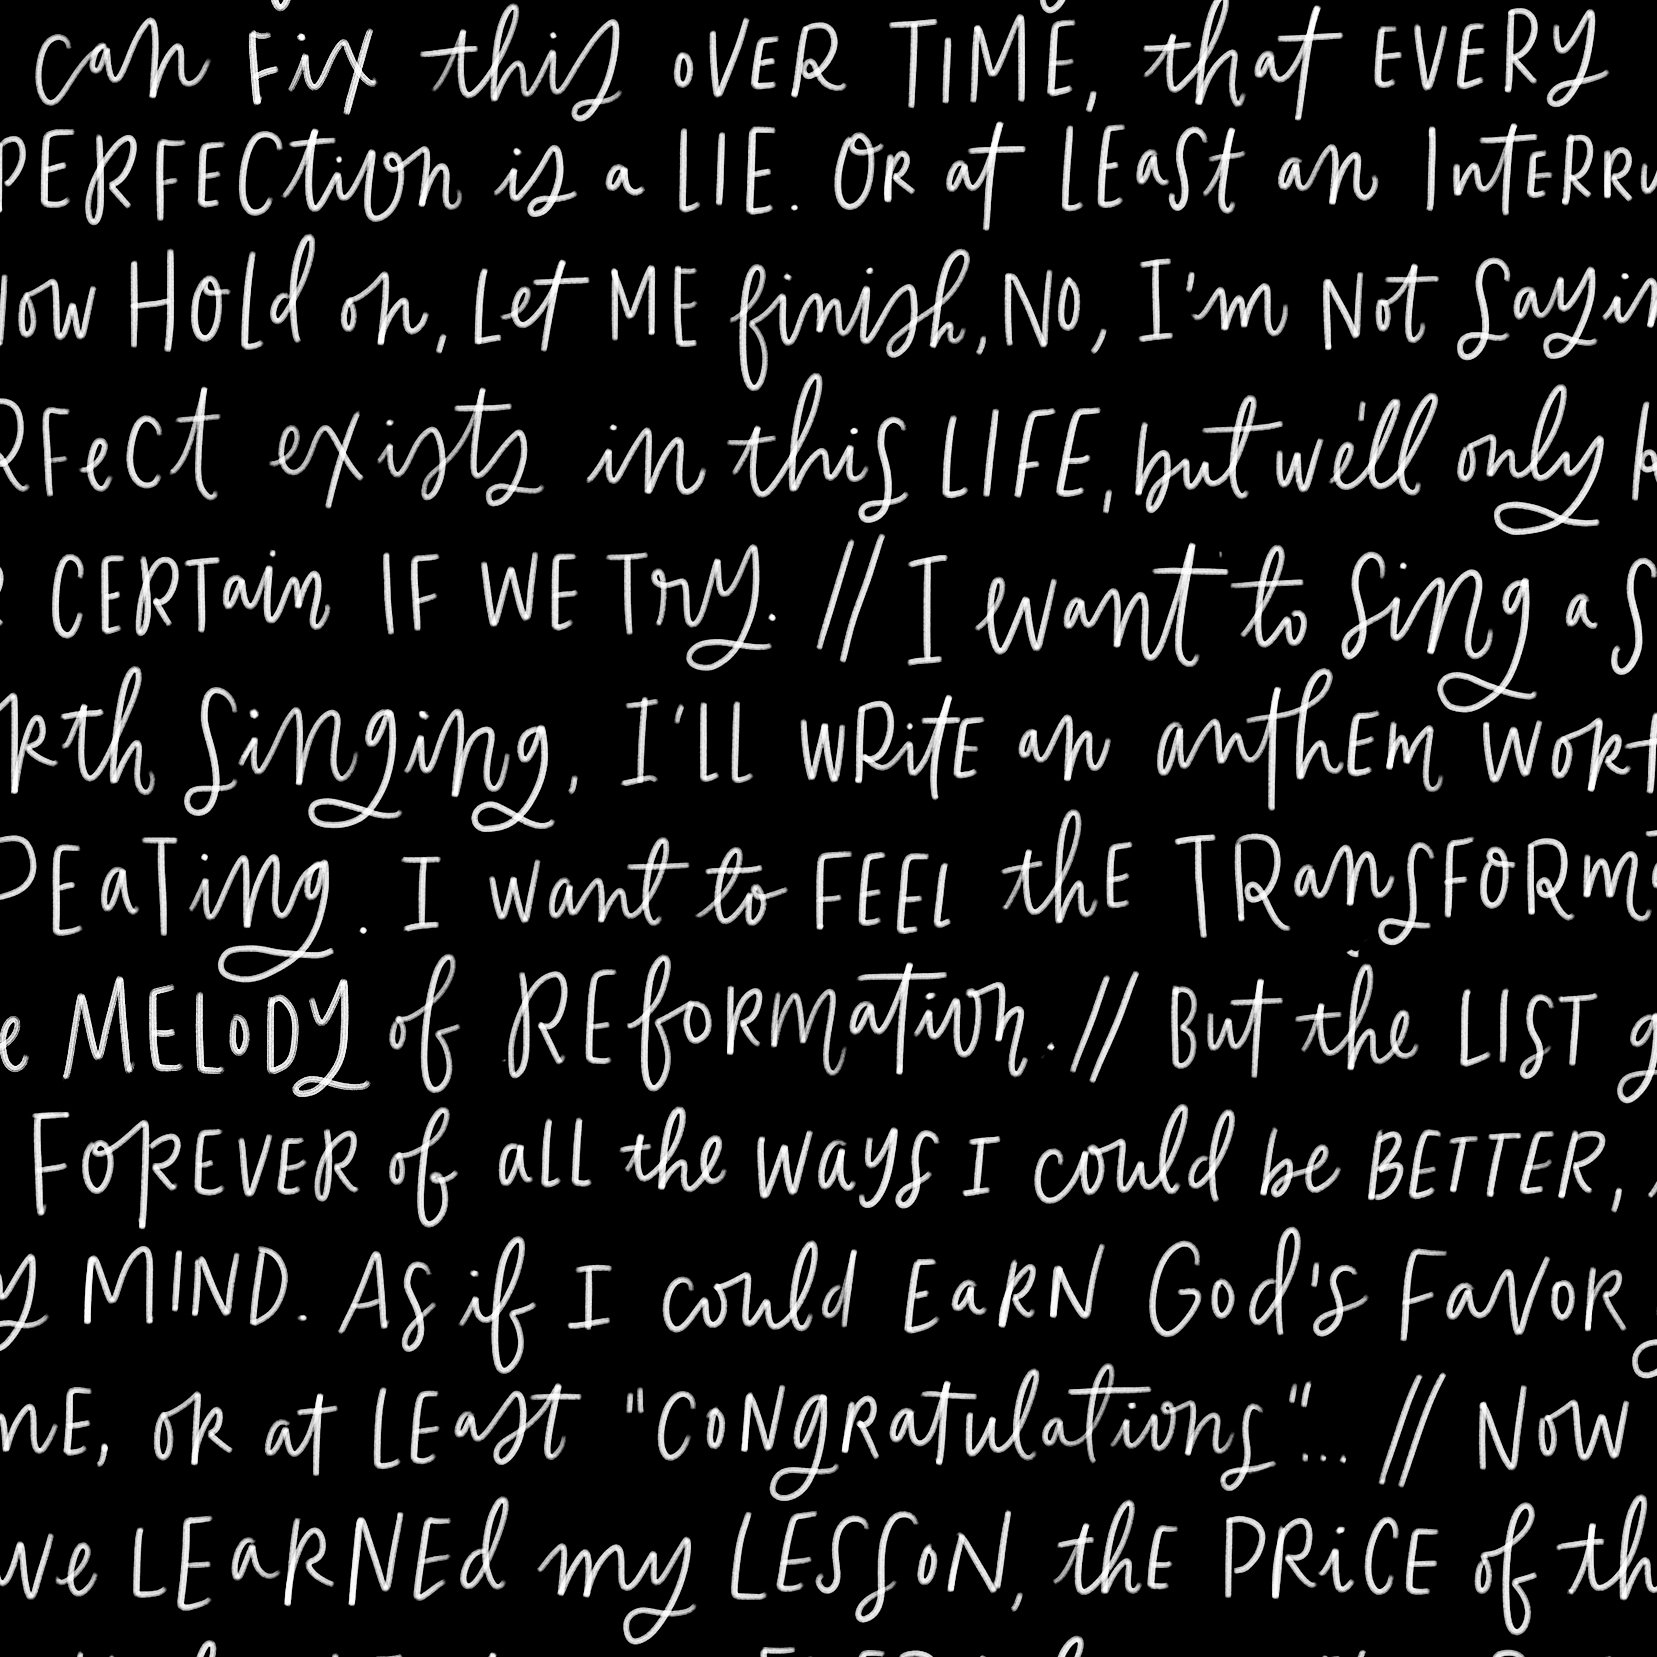 can Fix this oVER TIME, that EVERY
PERFECtion is a LIE. OR at LEast an InTERRu
Now HOLd on, Let ME finish, No, I'm Not Sayin
RFeCt exists in this LIFE, but we'll only k
CERTain IF WE Try. // I want to Sing a S
rth Singing, I'LL WRitE an anthEm Wort
PEaTing. I want to FEEL thE TRanSFORma
e MELoDy of REformation. // But the LIST g
FoREVER of all the Ways I could be BETTER,
y MIND. AS if I could EaRN God's FavoR
nE, oR at LEast "CoNgRatulations"... // Now
've LEaRNEd my LESSoN, thE PRiCE of th